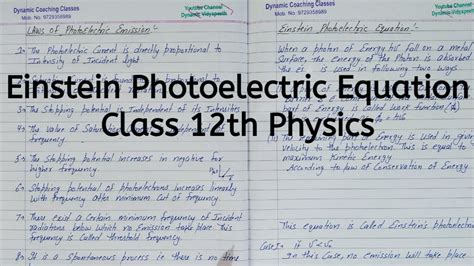 Dynamic Coaching Classes
Mob. No. 9729358989
Youtube Channel
Dynamic Vidyapeeth
Laws of PhotoElectric Emission:-
1:- The Photoelectric Current is directly proportional to
Intensity of Incident light
3:- The Stopping potential is Independent of its Intensities
4:- The value of
5:- The Stopping potential increases in negative for
higher frequency.
6:- Stopping potential of photoelectrons increases linearly
with frequency after minimum cut of frequency.
7:- There exist a Certain minimum frequency of Incident
radiations below which no Emission take place. This
frequency is Called threshold frequency.
8:- It is a Spontaneous process ie there is no time
Dynamic Coaching Classes
Mob. No. 9729358989
Youtube Channel
Dynamic Vidyapeeth
Einstein Photoelectric Equation:-
When a photon of Energy hν fall on a metal
Surface, the Energy of the Photon is absorbed
is used in following two ways
part of Energy is used
is Called work function
The remaining part of Energy is used in giving
velocity to the photoelectron. This is equal to
maximum Kinetic Energy.
According to law of Conservation of Energy
This equation is Called Einstein's photoelectric
Case I:- If ν < ν₀
In this Case, no emission will take place
Einstein Photoelectric Equation
Class 12th Physics